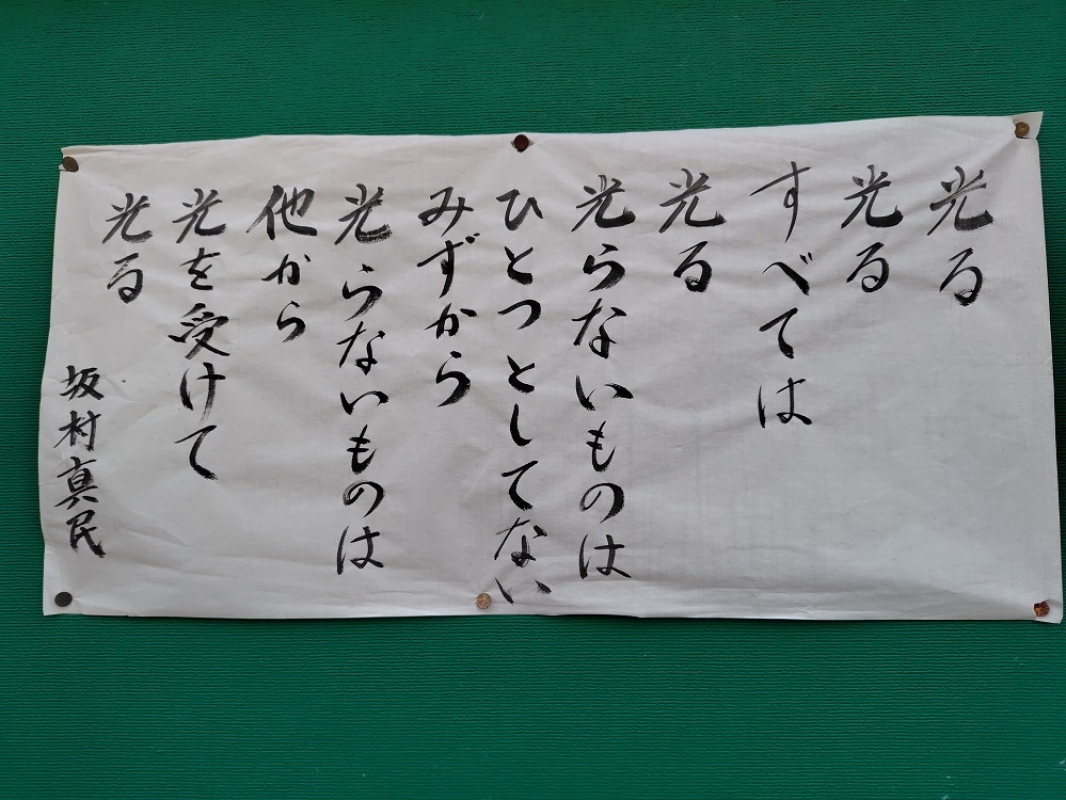 光る
光る
すべては
光る
光らないものは
ひとつとしてない
みずから
光らないものは
他から
光を受けて
光る
坂村真民